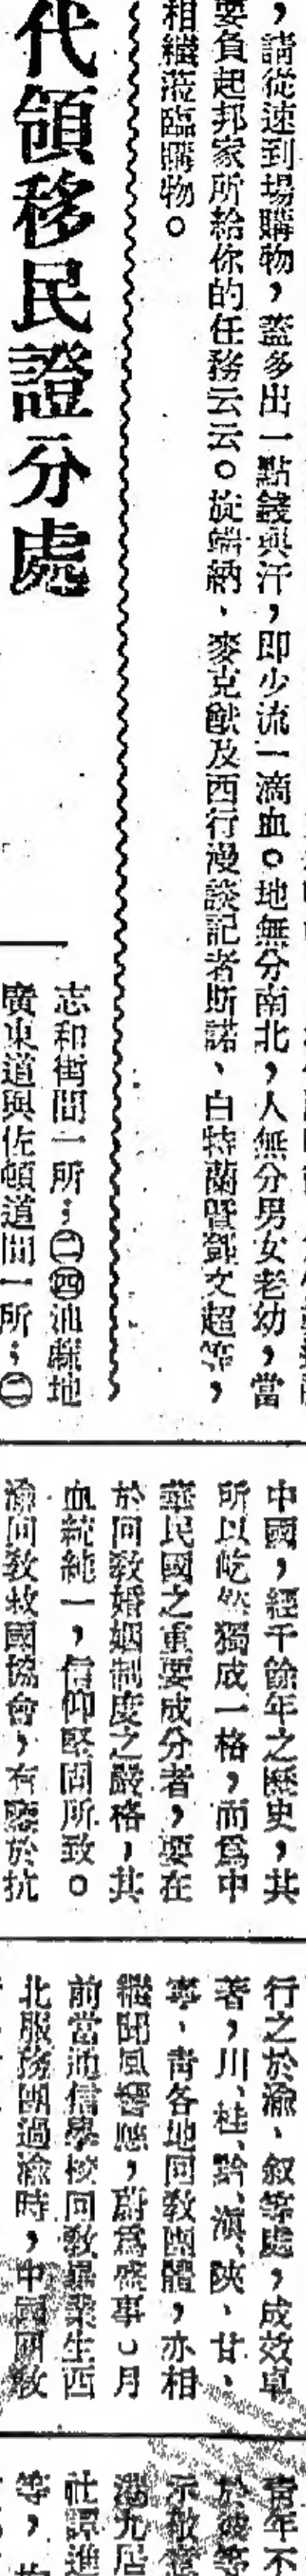 ，請從速到場購物，蓋多出一點錢與汗，即少流一滴血。地無分南北，人無分男女老幼，當
要負起邦家所給你的任務云云。旋端納、麥克猷及西行漫談記者斯諾、白特蘭暨鄧文超等，
相繼蒞臨購物。
代領移民證分處
志和街間一所；㊁㊃油蔴地
廣東道與佐頓道間一所；㊁
中國，經千餘年之歷史，其
所以屹然獨成一格，而爲中
華民國之重要成分者，要在
於回敎婚姻制度之嚴格，其
血統純一，信仰堅固所致。
渝回敎救國協會，有鑒於抗
行之於渝、叙等處，成效卓
著，川、桂、黔、滇、陝、甘、
寧、靑各地回敎團體，亦相
繼聞風響應，蔚爲盛事。月
前當通信學校回敎畢業生西
北服務團過渝時，中國回敎
靑年不
於彼等
示敬意
社譚進
等，